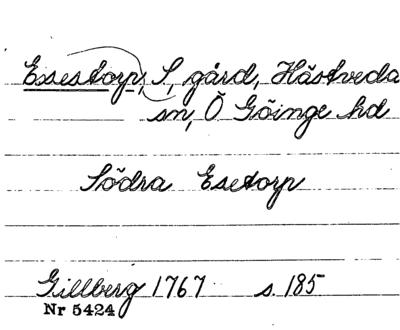 Essestorp, S, gård, Hästveda
sn, Ö Göinge hd
Södra Esetorp
Gillberg 1767 s. 185
Nr 5424